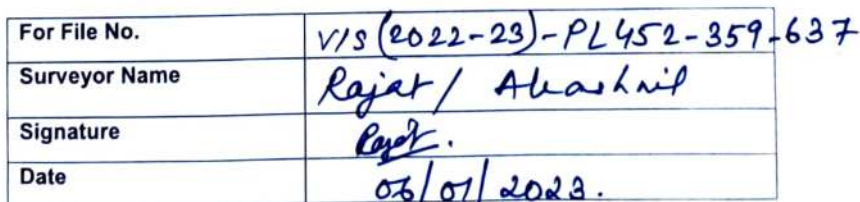 For File No. V/S (2022-23)-PL452-359-637
Surveyor Name Rajat /
Signature Rajat.
Date 06/01/2023.